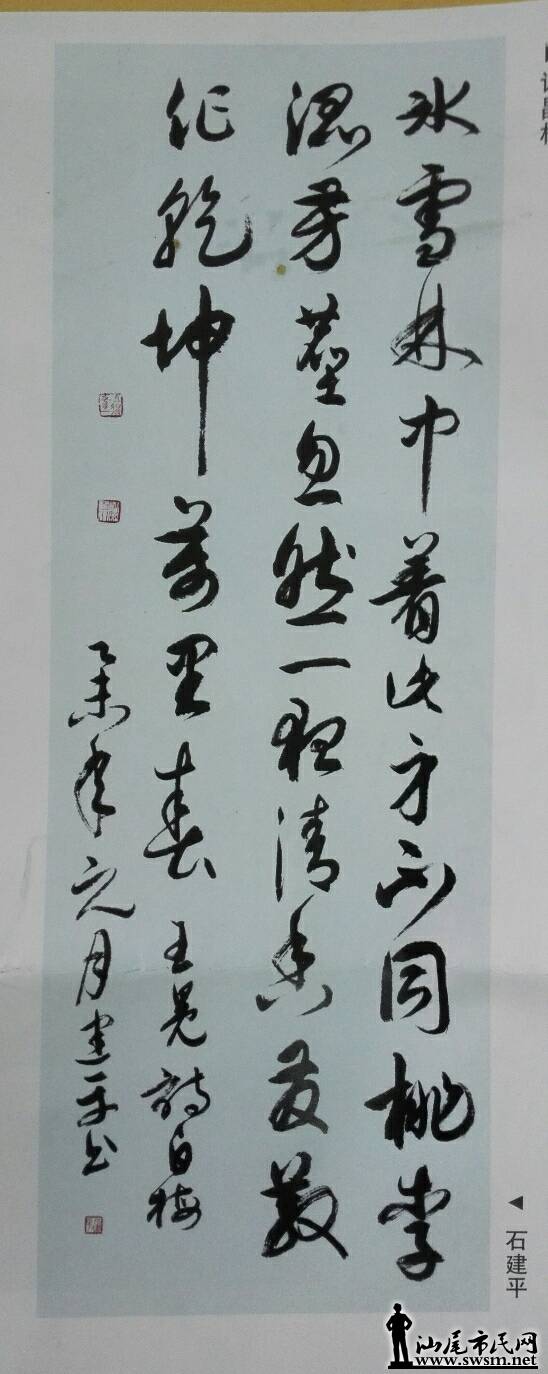 冰雪林中著此身不同桃李
混芳塵忽然一夜清香發散
作乾坤萬里春 王冕詩白梅
乙未年元月建平书
◀ 石建平
汕尾市民网
www.swsm.net